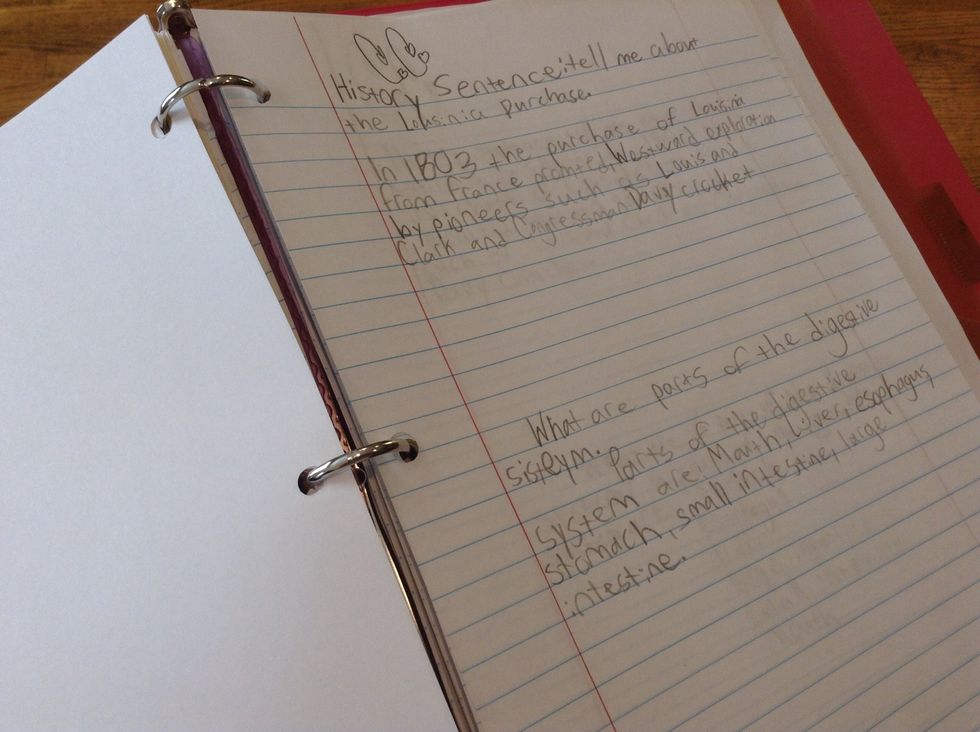 History Sentence: tell me about
the Lousinia Purchase.
In 1803 the purchase of Lousinia
from France promted Westward exploration
by pioneers such as Louis and
Clark and Congressman Davy crocket
What are parts of the digestive
sisteym. Parts of the digestive
system are: Mouth, Liver, esophagus,
stomach, small intestine, large
intestine.